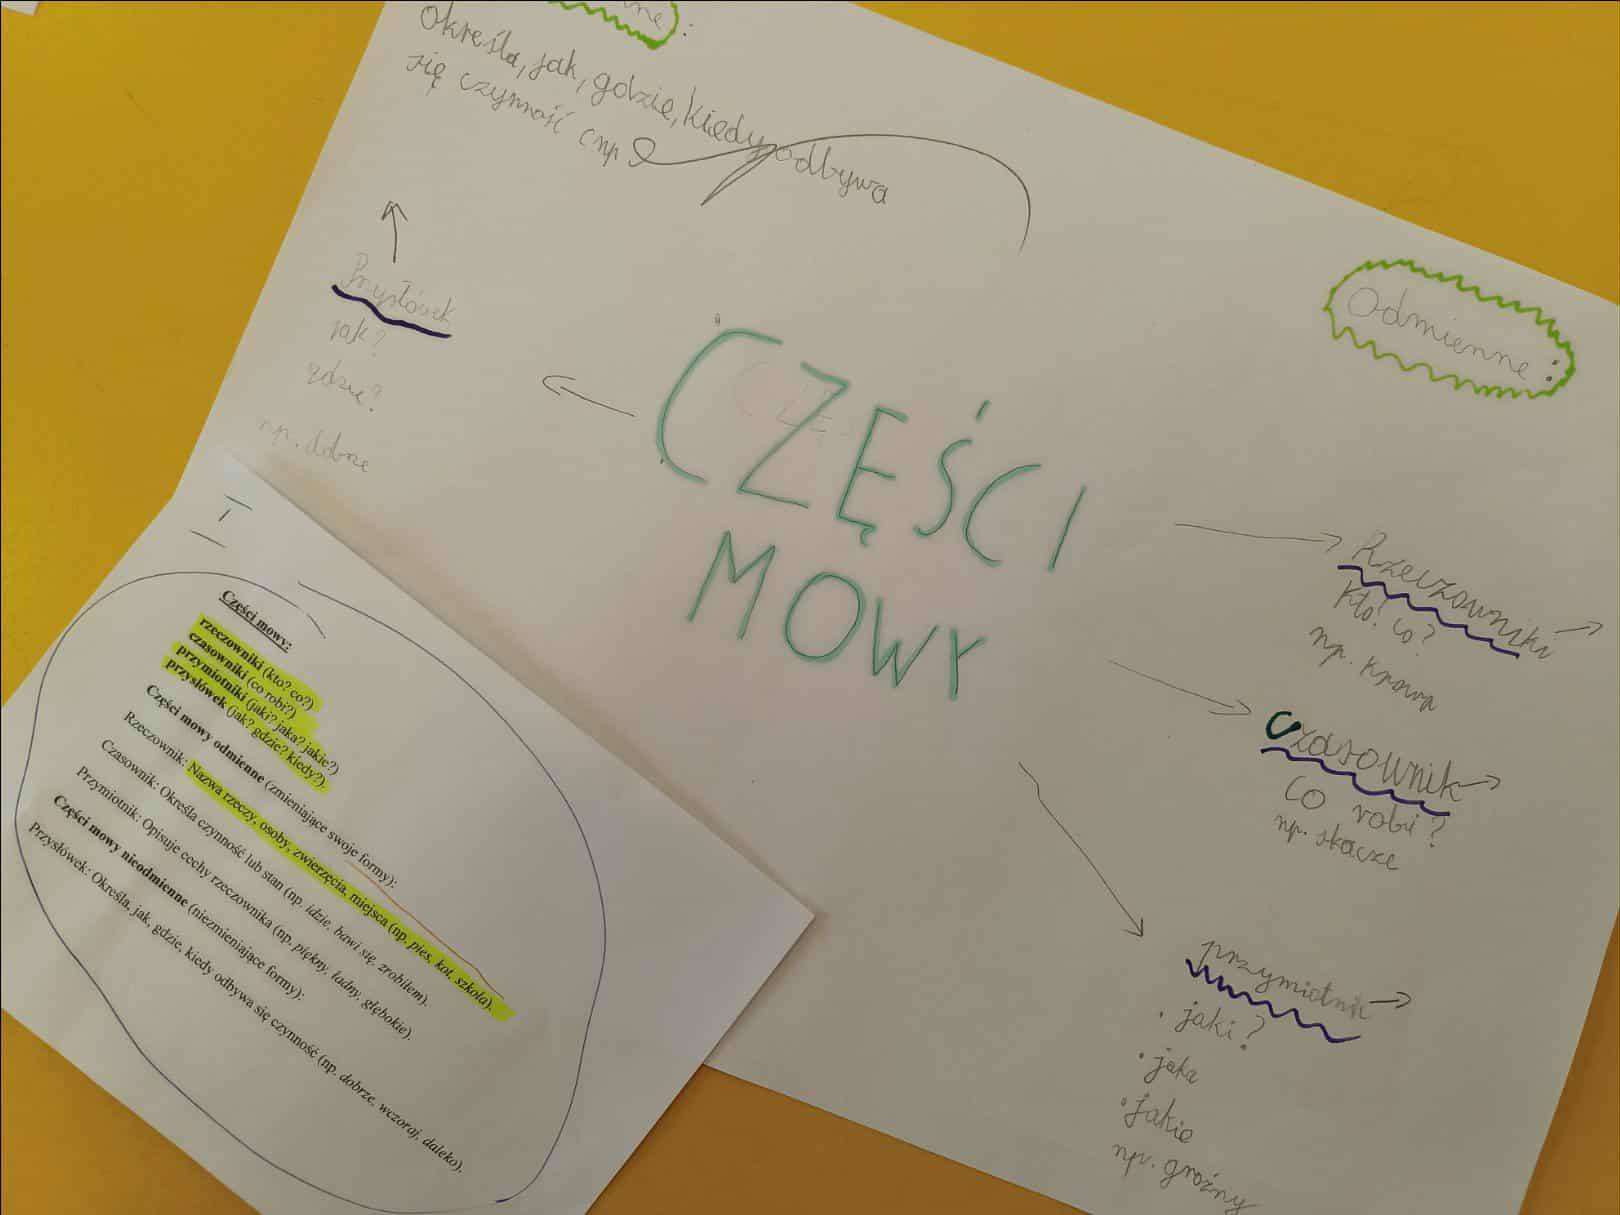 Określa, jak, gdzie, kiedy odbywa
się czynność (np
Przysłówek
jak?
gdzie?
np. dobrze
CZĘŚCI
MOWY
Odmienne:
Rzeczowniki
Kto? co?
np. krowa
Czasownik
co robi?
np. skacze
przymiotnik
• jaki?
• jaka
• jakie
np. groźny
I
Części mowy:
rzeczowniki (kto? co?)
czasowniki (co robi?)
przymiotniki (jaki? jaka? jakie?)
przysłówek (jak? gdzie? kiedy?).
Części mowy odmienne (zmieniające swoje formy):
Rzeczownik: Nazwa rzeczy, osoby, zwierzęcia, miejsca (np. pies, kot, szkoła).
Czasownik: Określa czynność lub stan (np. idzie, bawi się, zrobiłem).
Przymiotnik: Opisuje cechy rzeczownika (np. piękny, ładny, głębokie).
Części mowy nieodmienne (niezmieniające formy):
Przysłówek: Określa, jak, gdzie, kiedy odbywa się czynność (np. dobrze, wczoraj, daleko).